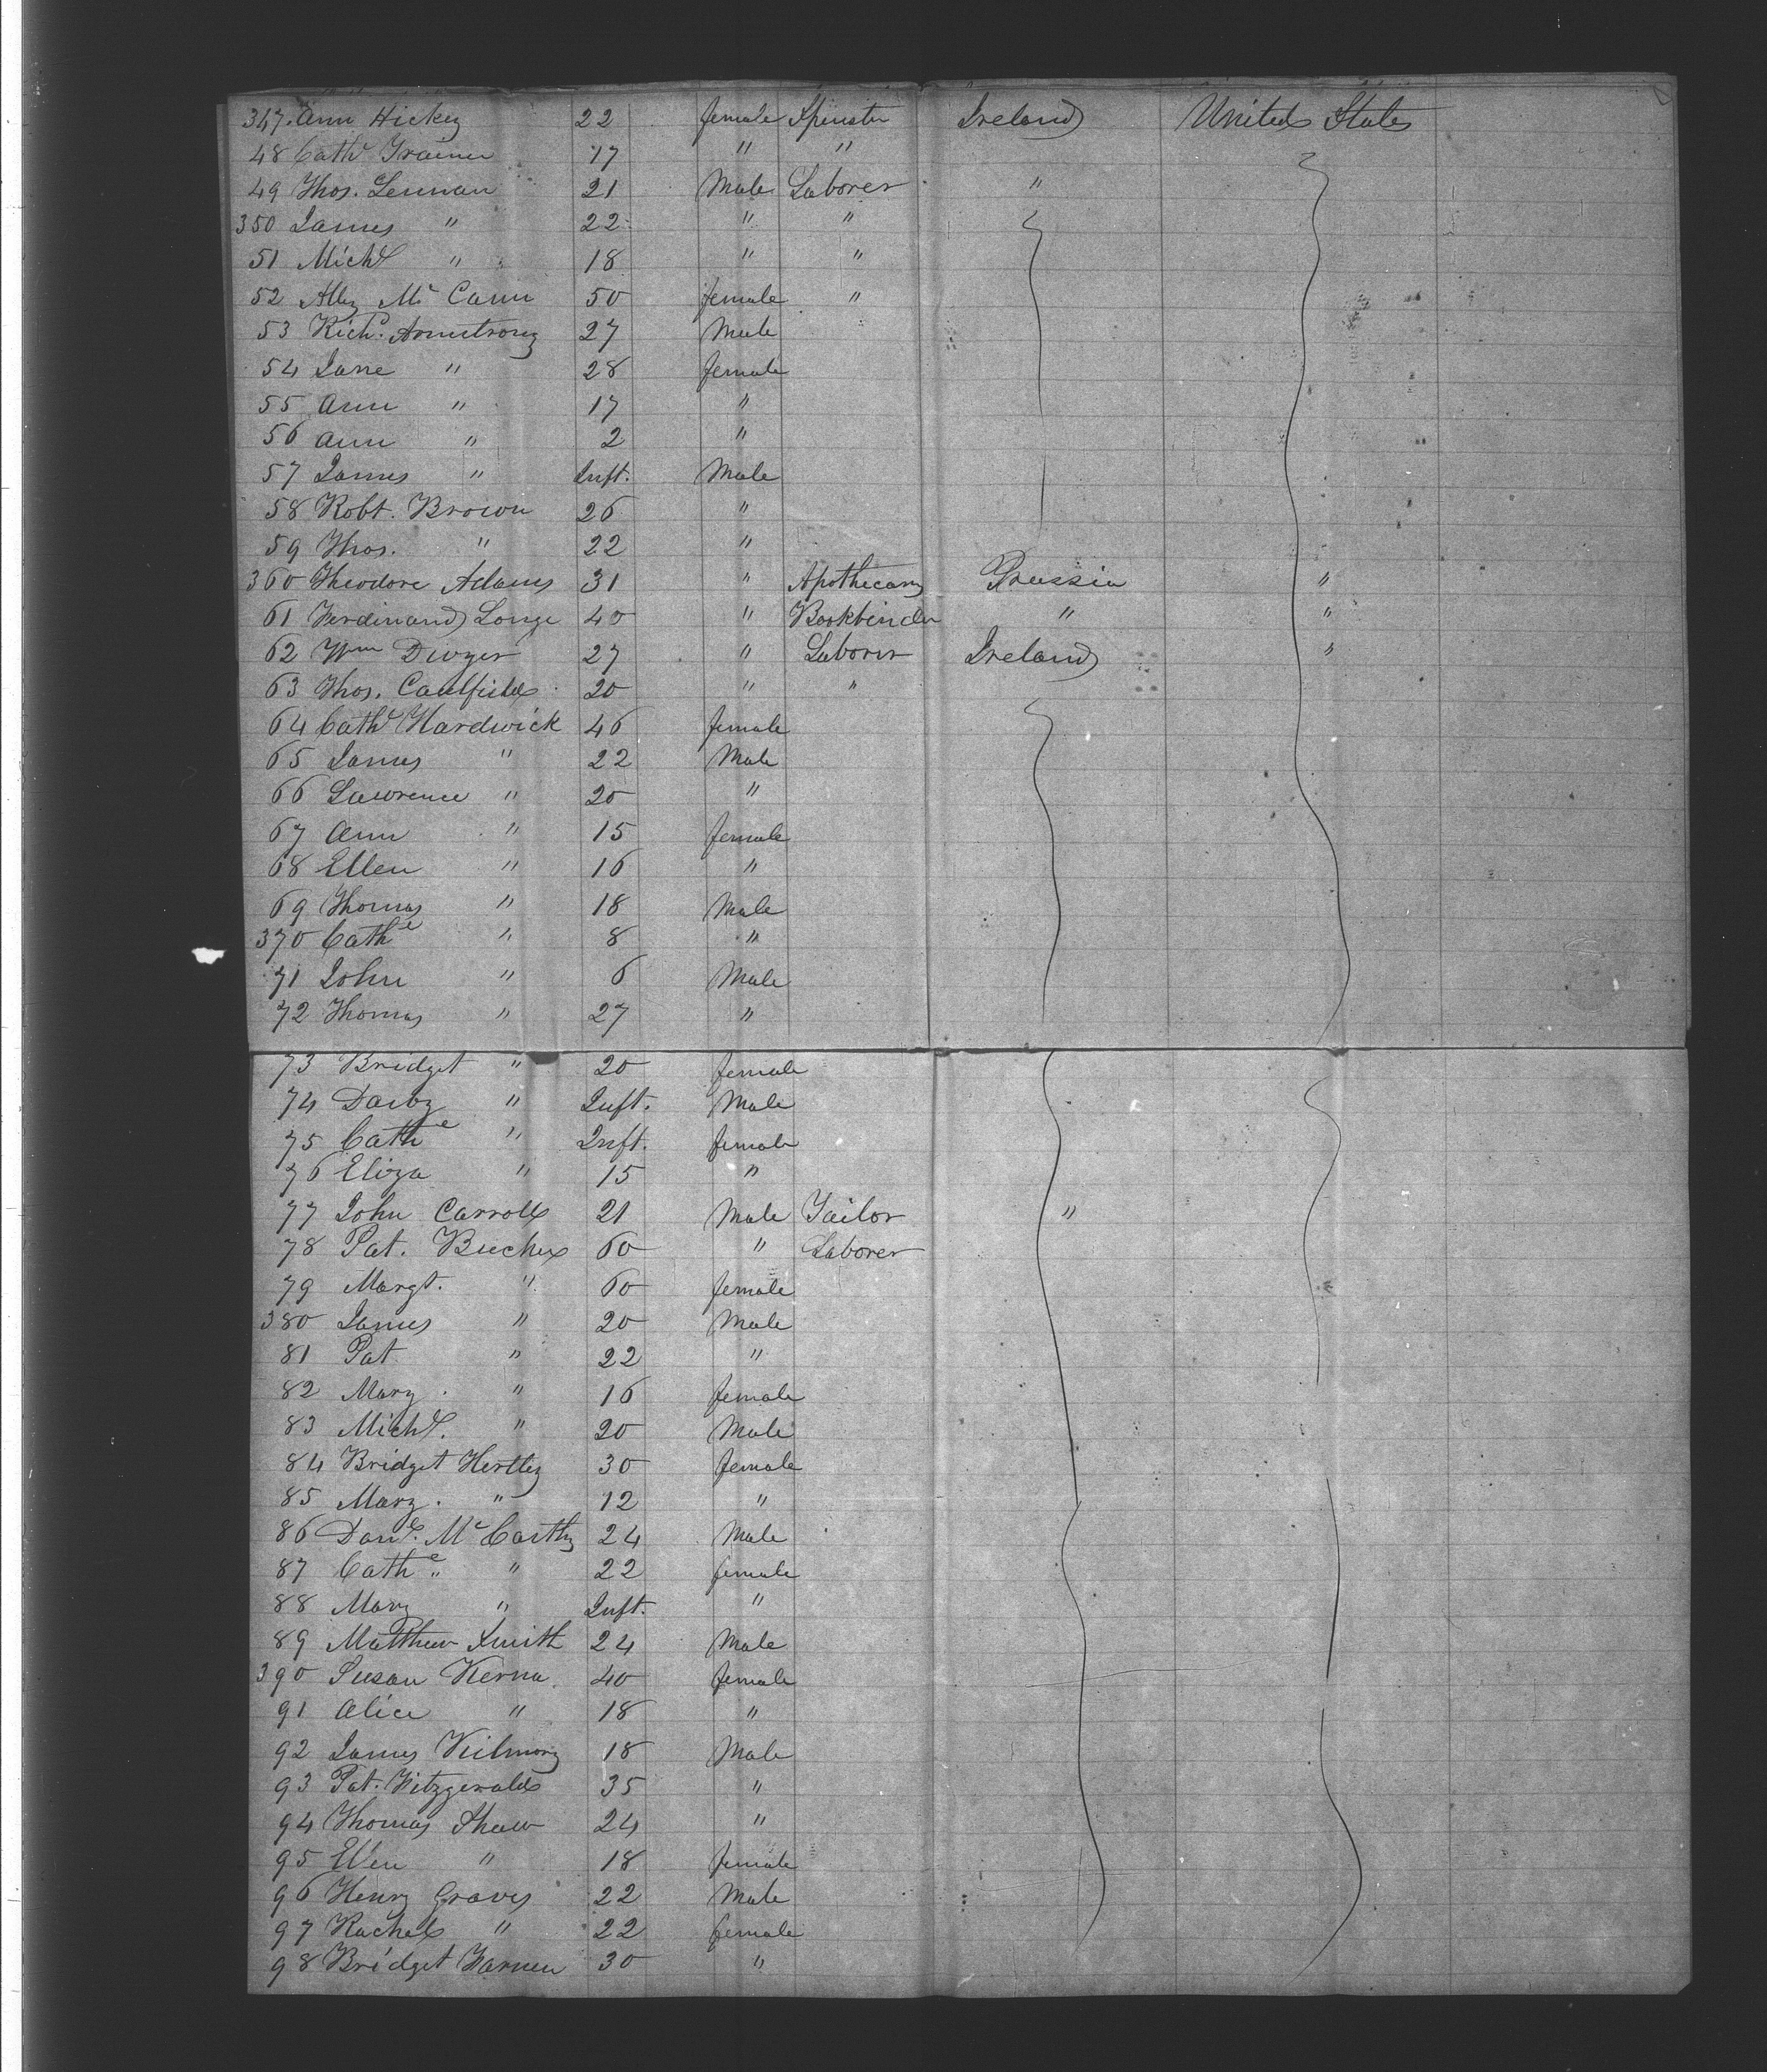 347. Ann Hickey 22 female Spinster Ireland United States
48 Cathe Trainer 17 " "
49 Thos. Lennan 21 Male Laborer "
350 James " 22 " "
51 Michl " 18 " "
52 Alley Mc Cann 50 female "
53 Richd. Armstrong 27 Male
54 Jane " 28 female
55 Ann " 17 "
56 Ann " 2 "
57 James " Inft. Male
58 Robt. Brown 26 "
59 Thos. " 22 "
360 Theodore Adams 31 " Apothecary Prussia "
61 Ferdinand Longe 40 " Bookbinder " "
62 Wm Dwyer 27 " Laborer Ireland "
63 Thos. Caulfield 20 " "
64 Cathe Hardwick 46 female
65 James " 22 Male
66 Lawrence " 20 "
67 Ann " 15 female
68 Ellen " 16 "
69 Thomas " 18 Male
370 Cathe " 8 "
71 John " 6 Male
72 Thomas " 27 "
73 Bridget " 20 female
74 Darby " Inft. Male
75 Cathe " Inft. female
76 Eliza " 15 "
77 John Carroll 21 Male Tailor "
78 Pat. 60 " Laborer
79 Margt. " 60 female
380 James " 20 Male
81 Pat " 22 "
82 Mary " 16 female
83 Michl. " 20 Male
84 Bridget Hertley 30 female
85 Mary. " 12 "
86 Danl. McCarthy 24 Male
87 Cathe " 22 female
88 Mary " Inft. "
89 Matthew Smith 24 Male
390 Susan Kerna 40 female
91 Alice " 18 "
92 James Kilmory 18 Male
93 Pat. Fitzgerald 35 "
94 Thomas Shaw 24 "
95 Ellen " 18 female
96 Henry Graves 22 Male
97 Rachel " 22 female
98 Bridget Farnen 30 "